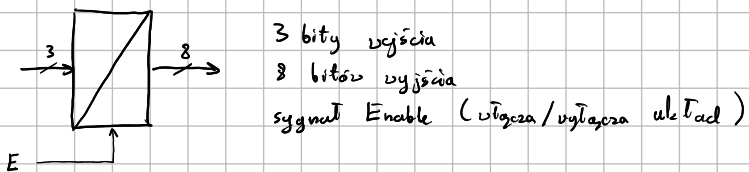 3
8
E
3 bity wejścia
8 bitów wyjścia
sygnał Enable (włącza/wyłącza układ)